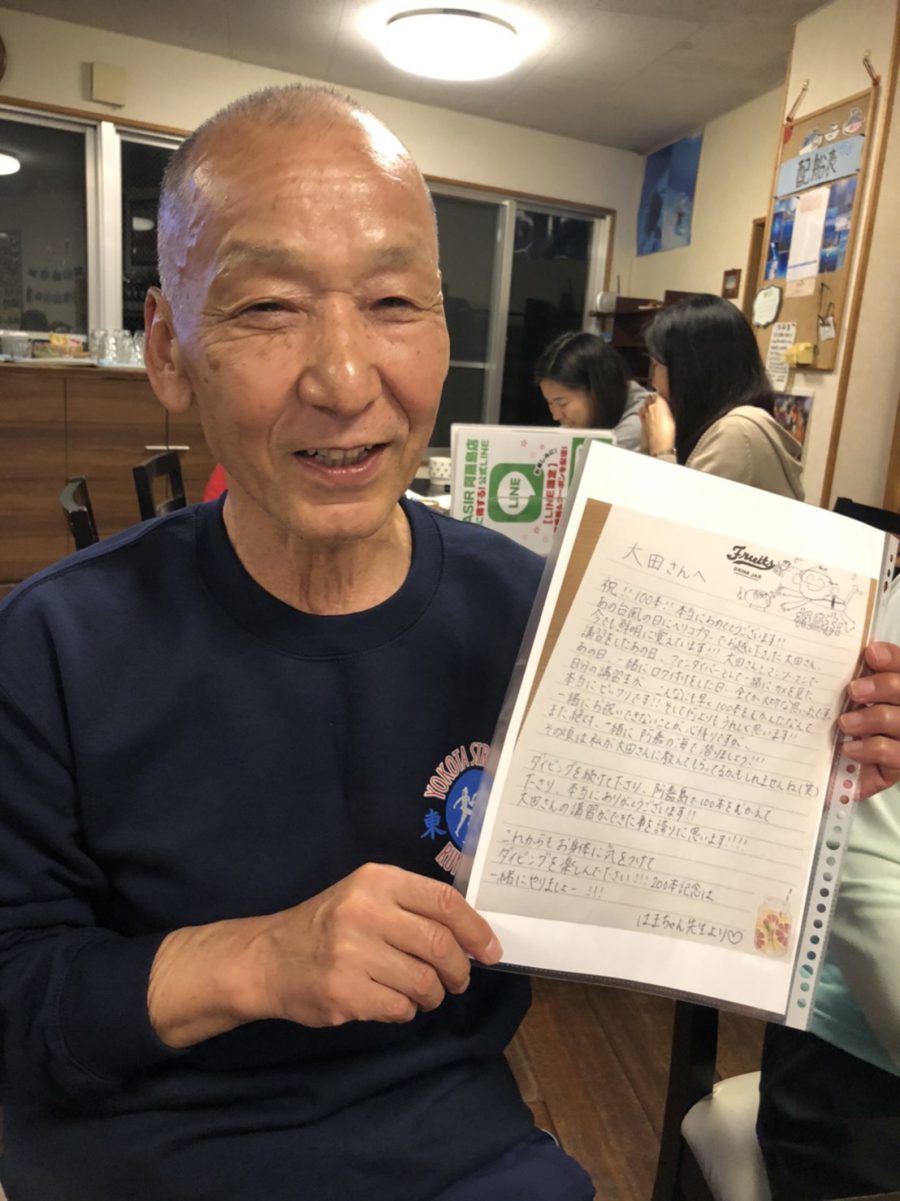 配船表
ASIR 阿嘉島店
公式LINE
LINE
【LINE限定】
YOKOTA STR
東
大田さんへ
Fruits
DRINK JAR
祝!!100本!!本当におめでとうございます!!
あの台風の日にヘリコプターでお越し下さった大田さん、
今でも鮮明に覚えています!!大田さんとマンツーマンで
講習をしたあの日、
あの日、一緒にログ付けをした日 全てが大切な思い出です。
自分の講習生が、こんなにも早く100本をむかえるなんて
本当にビックリです!!そして何よりもうれしく思います!!
一緒にお祝いできないことが、心残りですが、
また絶対、一緒に阿嘉の海で潜りましょう!!!
その時は私が大田さんに教えてもらってるかもしれませんね(笑)
ダイビングを続けて下さり、阿嘉島で100本をむかえて
下さり、本当にありがとうございます!!
大田さんの講習ができた事を誇りに思います!!!!
これからもお身体に気をつけて
ダイビングを楽しんで下さい!!!200本記念は
一緒にやりましょー!!!
はまちゃん先生より♡